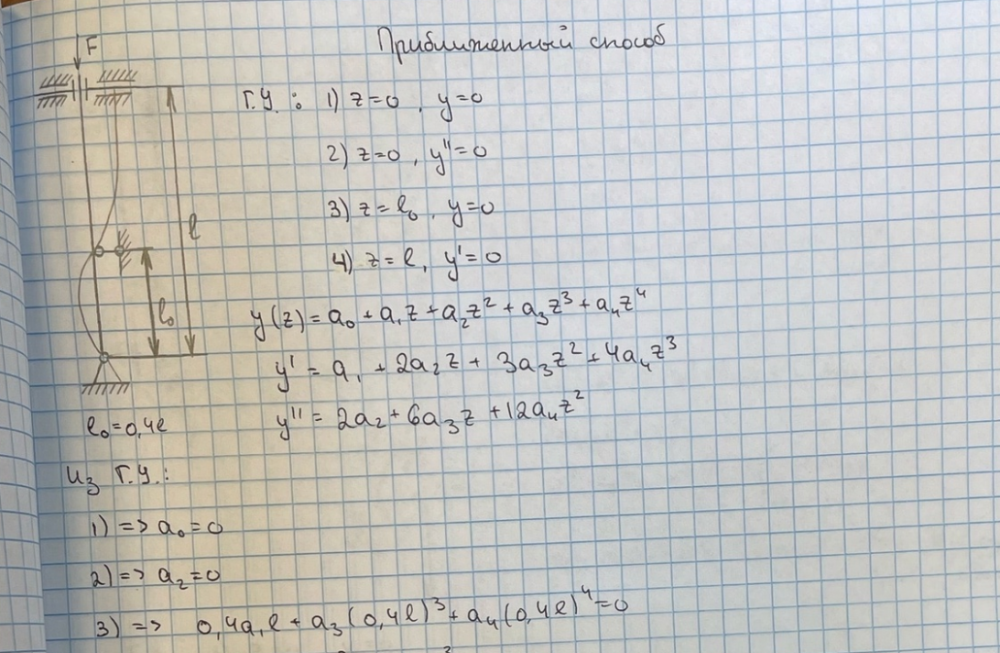 Приближенный способ
F
Г.У.: 1) z=0, y=0
2) z=0, y''=0
3) z=l₀, y=0
4) z=l, y'=0
l
l₀
y(z)=a₀+a₁z+a₂z²+a₃z³+a₄z⁴
y'=a₁+2a₂z+3a₃z²+4a₄z³
y''=2a₂+6a₃z+12a₄z²
l₀=0,4l
Из Г.У.:
1) => a₀=0
2) => a₂=0
3) => 0,4a₁l+a₃(0,4l)³+a₄(0,4l)⁴=0